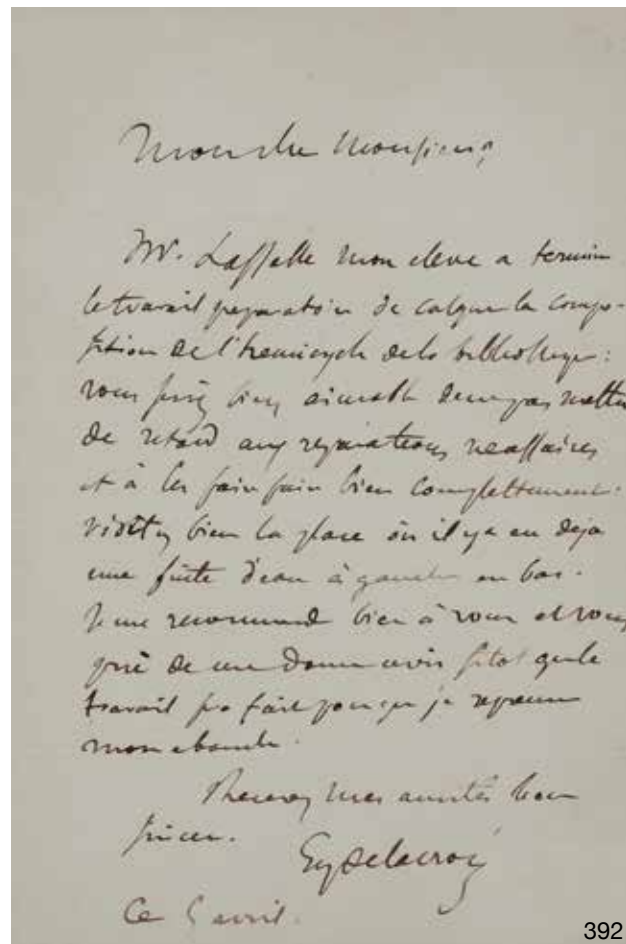 Mon cher Monsieur,
Mr. Lassalle mon eleve a termin
le travail preparatoire de calquer la compo-
sition de l'hemicycle de la bibliotheque:
vous serez bien aimable de ne pas mettre
de retard aux reparations necessaires
et à les faire faire bien complettement:
visitez bien la place où il y a eu deja
une fuite d'eau à gauche en bas.
Je me recommande bien à vous et vous
prie de me donner avis sitot que le
travail sera fait pour que je reprenne
mon ebauche.
Recevez mes amitiés bien
sincères.
Eug Delacroix
Ce 5 avril.
392